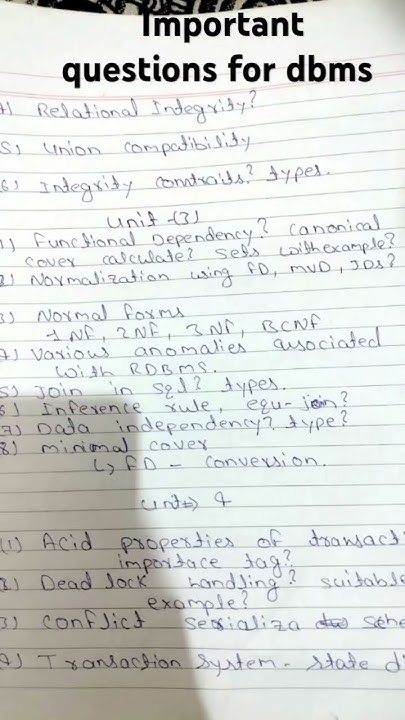 Important
questions for dbms
4) Relational Integrity?
5) Union compatibility
6) Integrity contraits? types.
Unit-(3)
1) Functional Dependency? Canonical
cover calculate? sets with example?
2) Normalization using FD, MVD, JDs?
3) Normal forms
1NF, 2NF, 3NF, BCNF
4) Various anomalies associated
with RDBMS.
5) Join in sql? types.
6) Inference rule, equ-join?
7) Data independency? type?
8) minimal cover
↳ FD - conversion.
Unit-> 4
(1) Acid properties of transacti
importace tag?
2) Dead lock handling? suitable
example?
3) Conflict serializa sche
4) Transaction system - state d